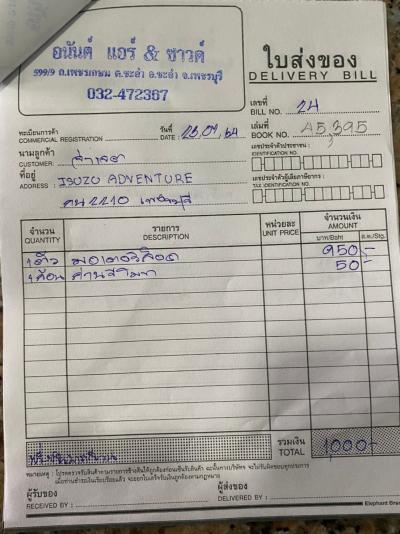 อนันต์ แอร์ & ซาวด์
599/9 ถ.เพชรเกษม ต.ชะอำ อ.ชะอำ จ.เพชรบุรี
032-472367
ใบส่งของ
DELIVERY BILL
เลขที่
BILL NO. 24
ทะเบียนการค้า
COMMERCIAL REGISTRATION
วันที่
DATE :
เล่มที่
BOOK NO. 45,395
นามลูกค้า
CUSTOMER:
เลขประจำตัวประชาชน :
IDENTIFICATION NO.
ที่อยู่
ADDRESS : ISUZU ADVENTURE
เลขประจำตัวผู้เสียภาษีอากร :
TAX IDENTIFICATION NO.
2210
จำนวน
QUANTITY
รายการ
DESCRIPTION
หน่วยละ
UNIT PRICE
จำนวนเงิน
AMOUNT
บาท/Baht
ส.ต./Stg.
1 ตัว 950.-
50.-
รวมเงิน
TOTAL 1,000.-
หมายเหตุ : โปรดตรวจรับสินค้าตามรายการข้างต้นให้ถูกต้องก่อนเซ็นรับสินค้า
ผู้รับของ
RECEIVED BY :
ผู้ส่งของ
DELIVERED BY :
Elephant Bra